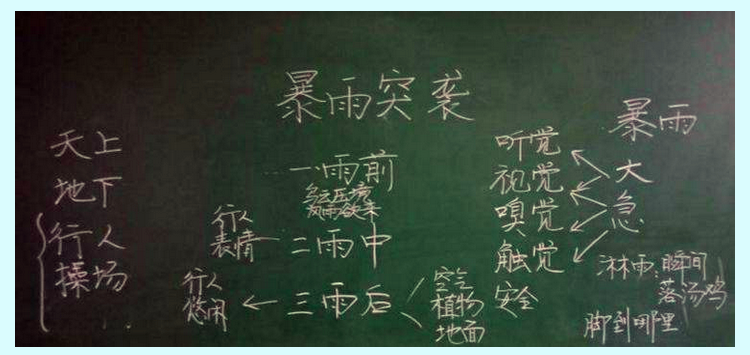 暴雨突袭
天上
地下
行人
操场
一雨前
风雨欲来
行人
表情
二雨中
行人
悠闲
三雨后
空气
植物
地面
听觉
视觉
嗅觉
触觉
安全
暴雨
大
急
淋雨:瞬间
落汤鸡
脚到哪里